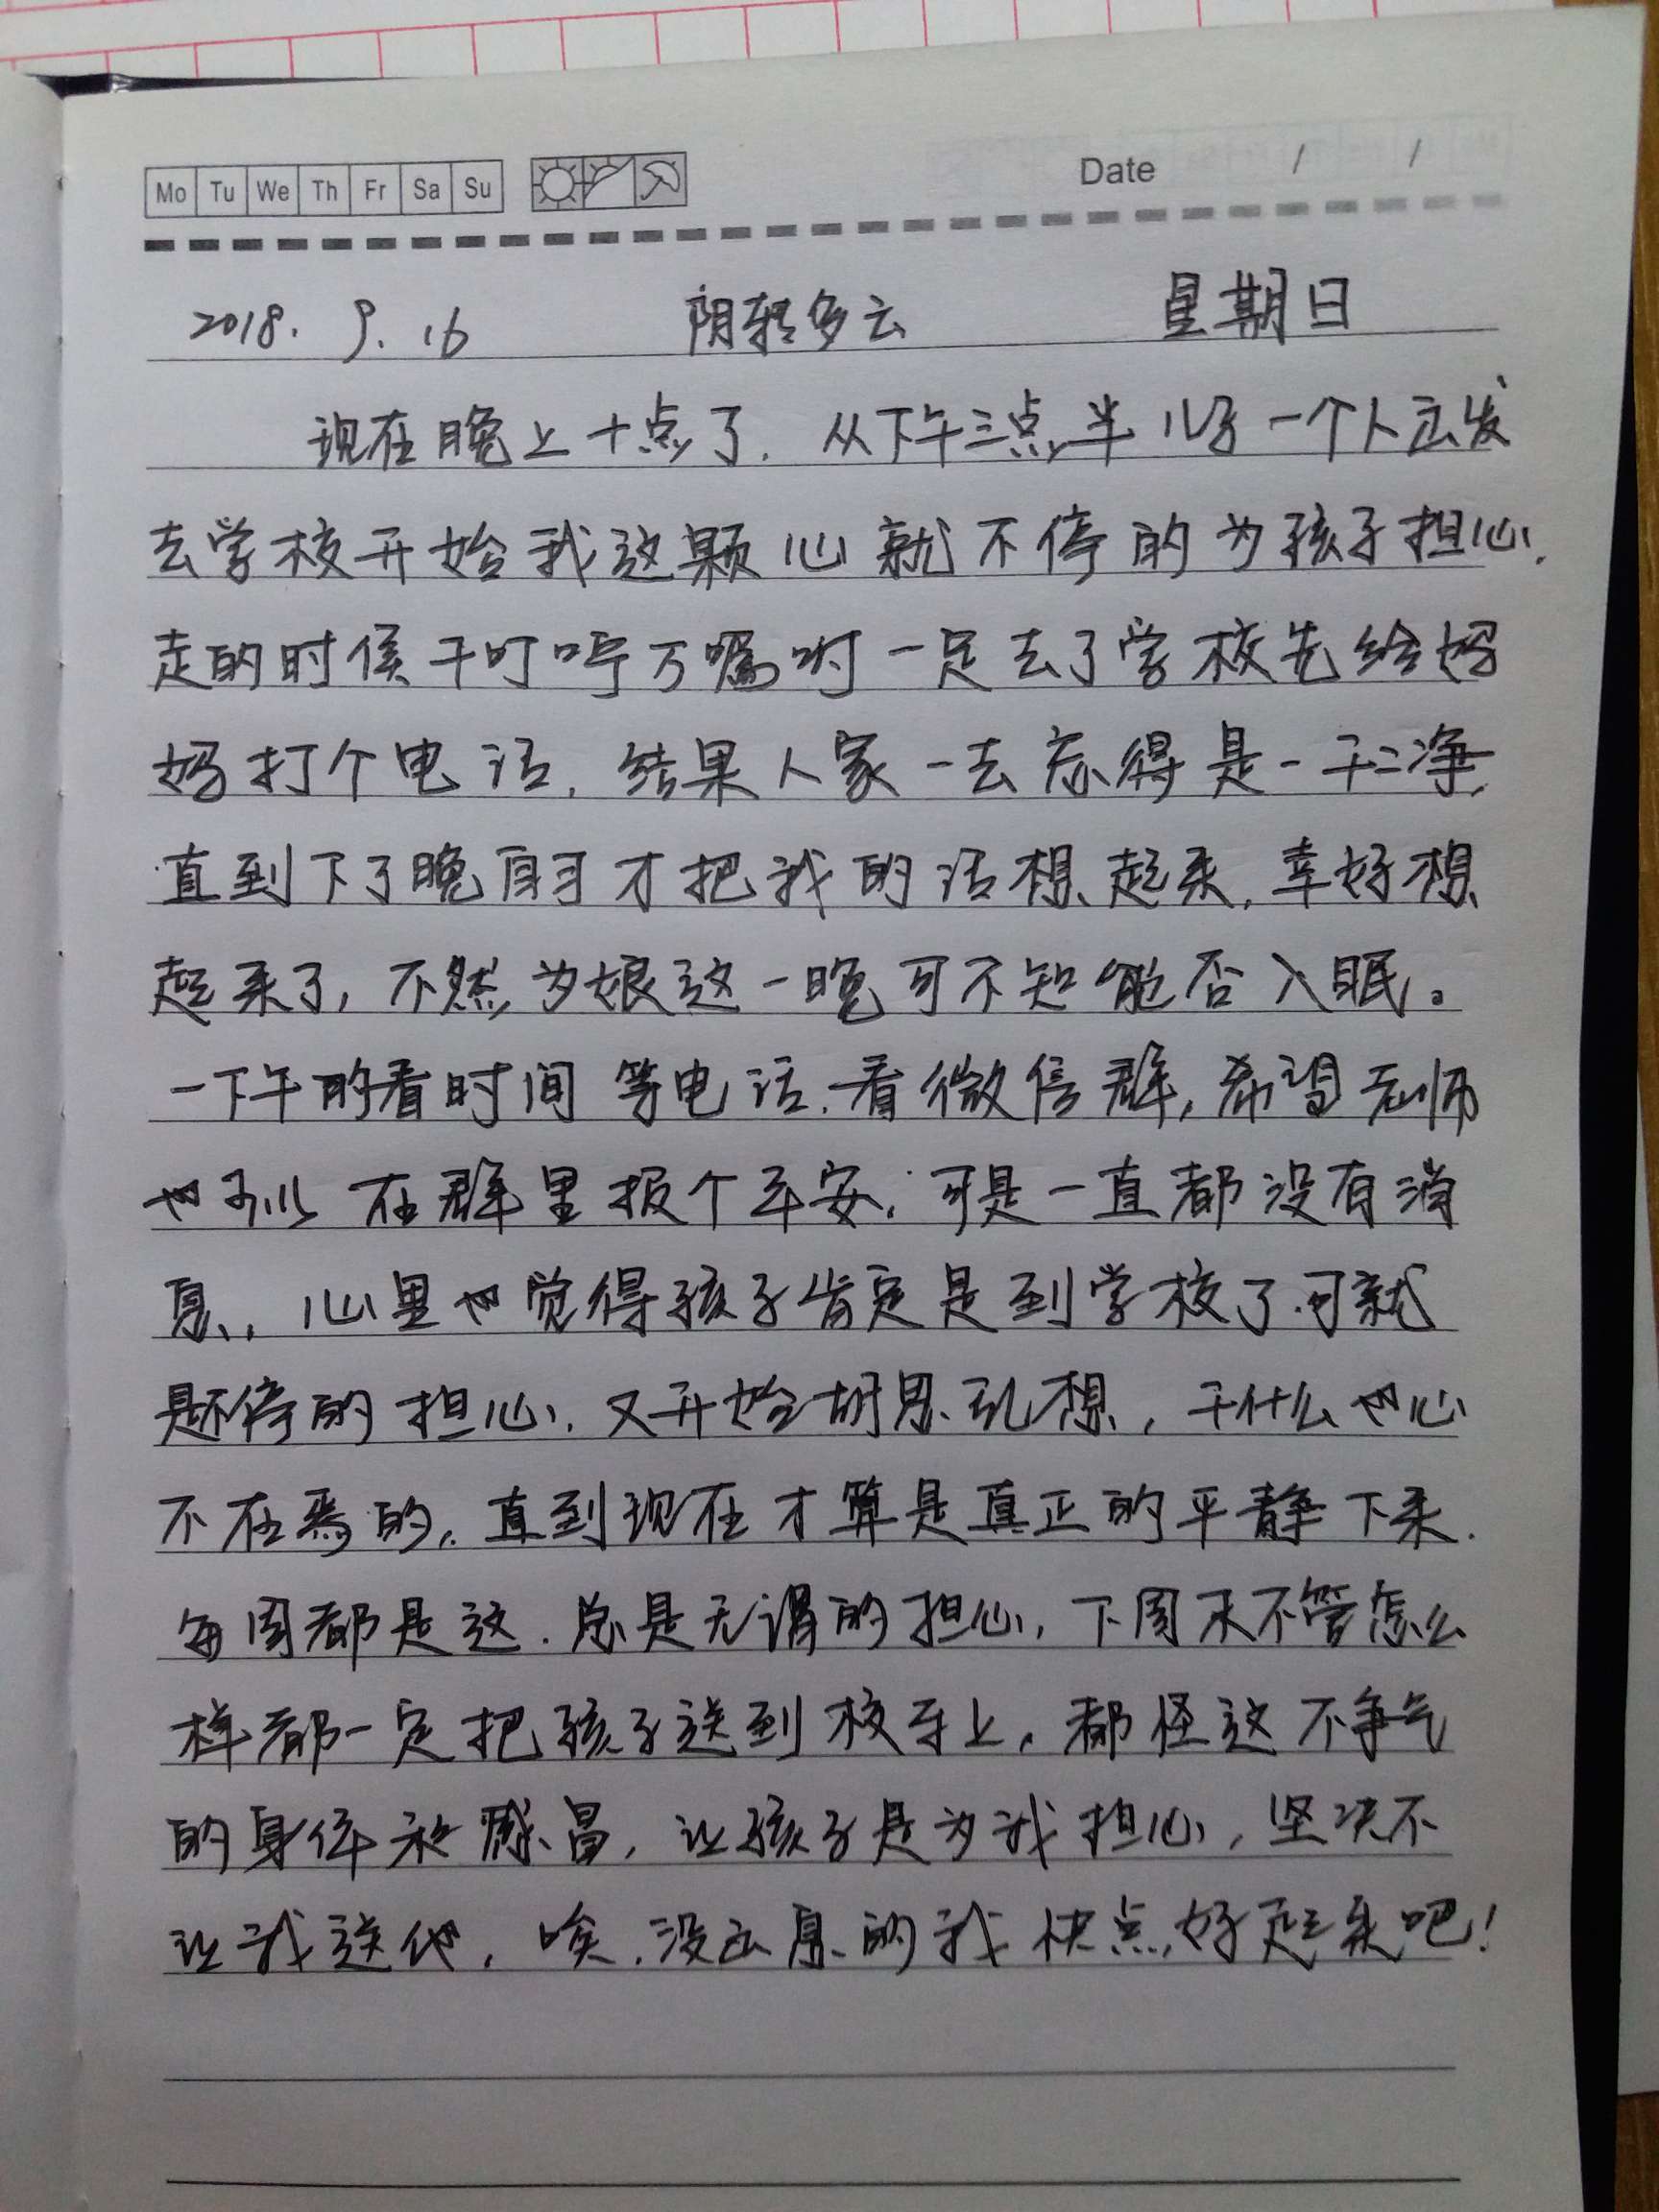 Mo Tu We Th Fr Sa Su Date / /
2018. 9. 16 阴转多云 星期日
现在晚上十点了. 从下午三点半儿子一个人出发
去学校开始我这颗心就不停的为孩子担心.
走的时候千叮咛万嘱咐一定去了学校先给妈
妈打个电话, 结果人家一去忘得是一干二净,
直到下了晚自习才把我的话想起来, 幸好想
起来了, 不然为娘这一晚可不知能否入眠。
一下午的看时间等电话.看微信群, 希望老师
也可以在群里报个平安, 可是一直都没有消
息, 心里也觉得孩子肯定是到学校了.可就
是不停的担心, 又开始胡思乱想, 干什么也心
不在焉的, 直到现在才算是真正的平静下来.
每周都是这.总是无谓的担心, 下周末不管怎么
样都一定把孩子送到校车上, 都怪这不争气
的身体 感冒, 让孩子是为我担心, 坚决不
让我送他, 唉.没出息的我快点好起来吧!